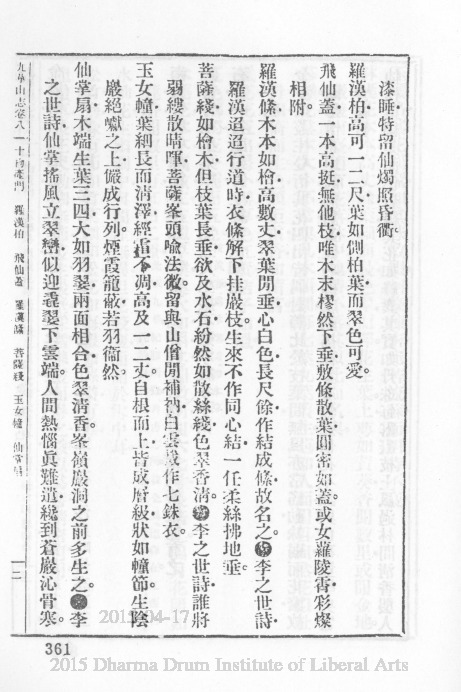 漆睡特留仙燭照昏衢
羅漢柏高可一二尺葉如側柏葉而翠色可愛。
飛仙蓋一本高挺無他枝唯木末樛然下垂敷條散葉圓密如蓋。或女蘿陵霄彩燦
相附。
羅漢絛木本如檜高數丈翠葉間垂心白色長尺餘作結成絛故名之。李之世詩
羅漢迢迢行道時衣絛解下挂巖枝。生來不作同心結一任柔絲拂地垂。
菩薩綫如檜木但枝葉長垂欲及水石紛然如散絲綫色翠香清。李之世詩誰將
弱縷散晴暉菩薩峯頭喻法微。留與山僧閒補衲白雲裁作七銖衣。
玉女幢葉細長而清澤經霜不凋高及一二丈自根而上皆成層級狀如幢節。生陰
巖絕巘之上儼成行列。煙霞籠蔽若羽衞然。
仙掌扇木端生葉三四大如羽翣兩面相合色翠清香。峯嶺巖洞之前多生之。李
之世詩仙掌搖風立翠巒似迎毳翣下雲端。人間熱惱眞難遣纔到蒼巖沁骨寒。
九華山志卷八 十物產門 羅漢柏 飛仙蓋 羅漢絛 菩薩綫 玉女幢 仙掌扇
一二
361
2015-04-17
2015 Dharma Drum Institute of Liberal Arts